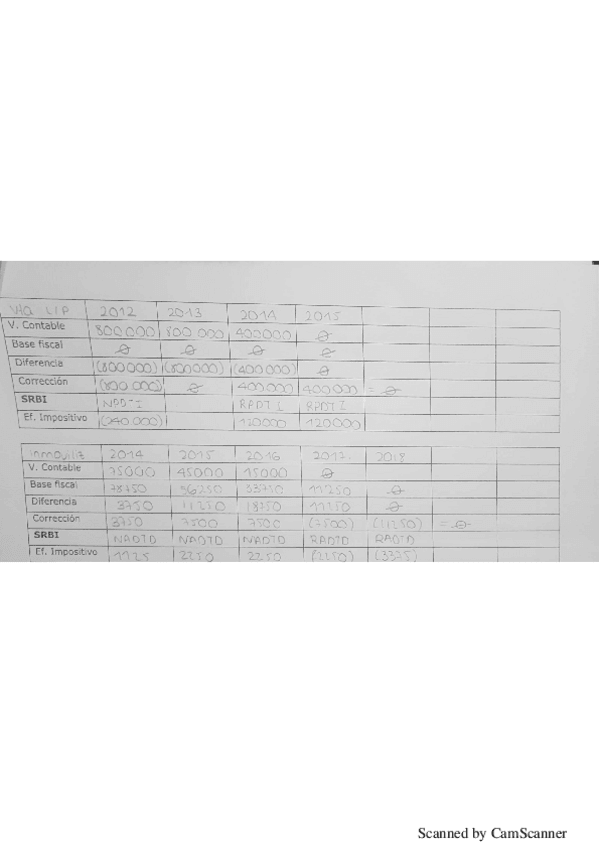 Vta LIP 2012 2013 2014 2015
V. Contable 800000 800 000 400000 0
Base fiscal 0 0 0 0
Diferencia (800000) (800000) (400000) 0
Corrección (800 000) 0 400000 400000 = 0
SRBI NPDTI RPDT I RPDT I
Ef. Impositivo (240 000) 120000 120000
inmoviliz 2014 2015 2016 2017 2018
V. Contable 75000 45000 15000 0
Base fiscal 78750 56250 33750 11250 0
Diferencia 3750 11250 18750 11250 0
Corrección 3750 7500 7500 (7500) (11250) = 0
SRBI NADTD NADTD NADTD RADTD RADTD
Ef. Impositivo 1125 2250 2250 (2250) (3375)
Scanned by CamScanner